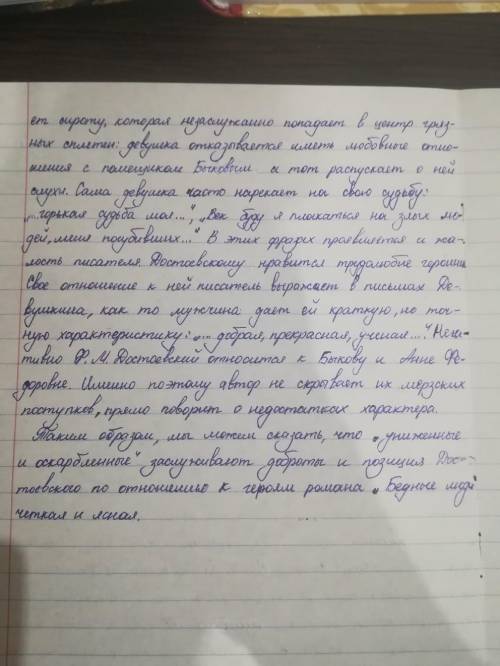 ет сироту, которая незаслуженно попадает в центр гряз-
ных сплетен: девушка отказывается иметь любовные отно-
шения с помещиком Быковым а тот распускает о ней
слухи. Сама девушка часто нарекает на свою судьбу:
„...горькая судьба моя...", „Век буду я плакаться на злых лю-
дей, меня погубивших..." В этих фразах проявляется и жа-
лость писателя. Достоевскому нравится трудолюбие героини
Свое отношение к ней писатель выражает в письмах Де-
вушкина, как то мужчина дает ей краткую, но точ-
ную характеристику: „... добрая, прекрасная, ученая...". Нега-
тивно Ф. М. Достоевский относится к Быкову и Анне Фе-
доровне. Именно поэтому автор не скрывает их мерзских
поступков, прямо говорит о недостатках характера.
Таким образом, мы можем сказать, что „униженные
и оскарбленные" заслуживают доброты и позиция Дос-
тоевского по отношению к героям романа „Бедные люди
четкая и ясная.